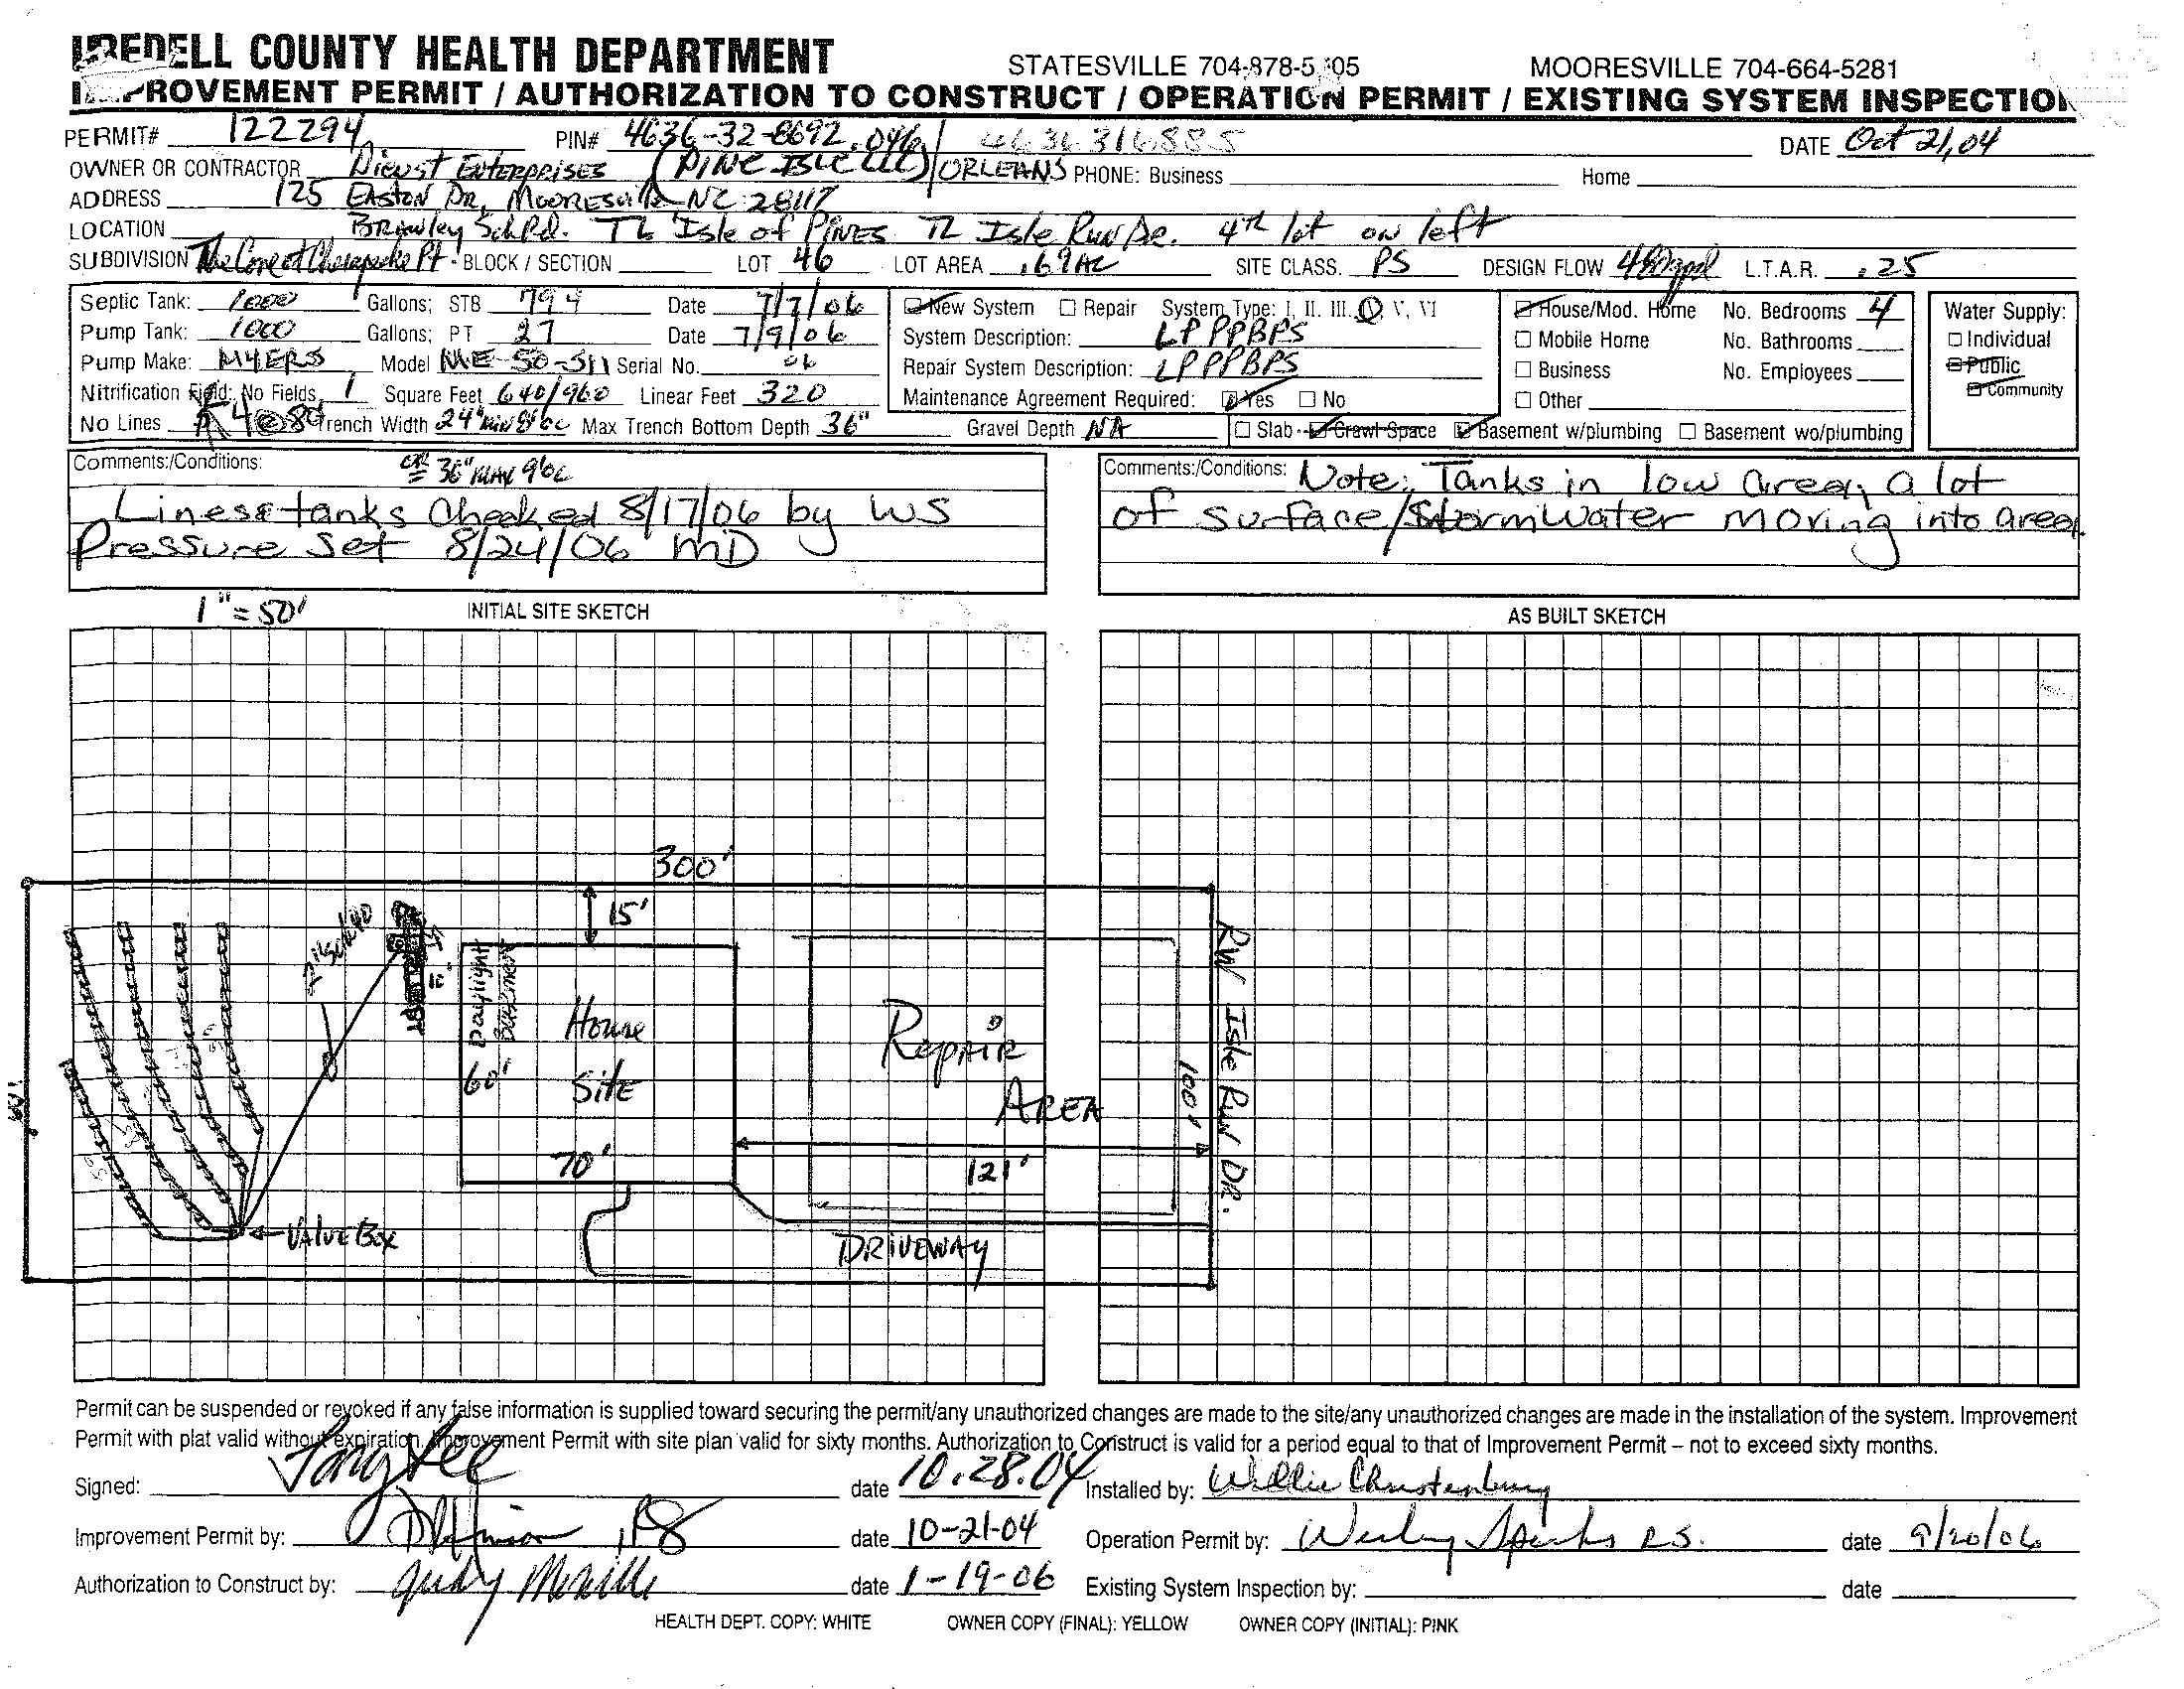 IREDELL COUNTY HEALTH DEPARTMENT STATESVILLE 704-878-5 05 MOORESVILLE 704-664-5281
IMPROVEMENT PERMIT / AUTHORIZATION TO CONSTRUCT / OPERATION PERMIT / EXISTING SYSTEM INSPECTION
PERMIT# 122294 PIN# 4636-32-8692.046 4636316885 DATE Oct 21,04
OWNER OR CONTRACTOR Dienst Enterprises (PINE ISLE LLC) ORLEANS PHONE: Business Home
ADDRESS 125 EASTON DR, MOORESville NC 28117
LOCATION BRAwley Sch Rd. TL Isle of PINES TL Isle Run Dr. 4th lot on left
SUBDIVISION The Cove at Chesapeake Pt. BLOCK / SECTION LOT 46 LOT AREA .69AC SITE CLASS. PS DESIGN FLOW 480gpd L.T.A.R. .25
Septic Tank: 1000 Gallons; STB 794 Date 7/7/06
Pump Tank: 1000 Gallons; PT 27 Date 7/9/06
Pump Make: MYERS Model ME-50-S11 Serial No. 06
Nitrification Field: No Fields 1 Square Feet 640/960 Linear Feet 320
No Lines 4@80' Trench Width 24" min 8'oc Max Trench Bottom Depth 36" Gravel Depth NA
New System Repair System Type: I, II. III. IV V, VI
System Description: LPPPBPS
Repair System Description: LPPPBPS
Maintenance Agreement Required: Yes No
House/Mod. Home No. Bedrooms 4
Mobile Home No. Bathrooms
Business No. Employees
Other
Slab Crawl Space Basement w/plumbing Basement wo/plumbing
Water Supply:
Individual
Public
Community
Comments:/Conditions: or 36" MAX 9'oc
Lines & tanks Checked 8/17/06 by WS
Pressure Set 8/24/06 MD
Comments:/Conditions: Note: Tanks in low area; a lot
of surface/Stormwater moving into area.
1" = 50' INITIAL SITE SKETCH
AS BUILT SKETCH
300'
15'
2" Sch 40
Daylight
Basement
House
Site
60'
70'
Repair
AREA
100'
RW Isle Run DR.
121'
VALVE BOX
DRIVEWAY
Permit can be suspended or revoked if any false information is supplied toward securing the permit/any unauthorized changes are made to the site/any unauthorized changes are made in the installation of the system. Improvement
Permit with plat valid without expiration, Improvement Permit with site plan valid for sixty months. Authorization to Construct is valid for a period equal to that of Improvement Permit – not to exceed sixty months.
Signed: date 10.28.04 Installed by: Willie Christenbury
Improvement Permit by: date 10-21-04 Operation Permit by: Wesley Sparks R.S. date 9/20/06
Authorization to Construct by: Judy date 1-19-06 Existing System Inspection by: date
HEALTH DEPT. COPY: WHITE OWNER COPY (FINAL): YELLOW OWNER COPY (INITIAL): PINK